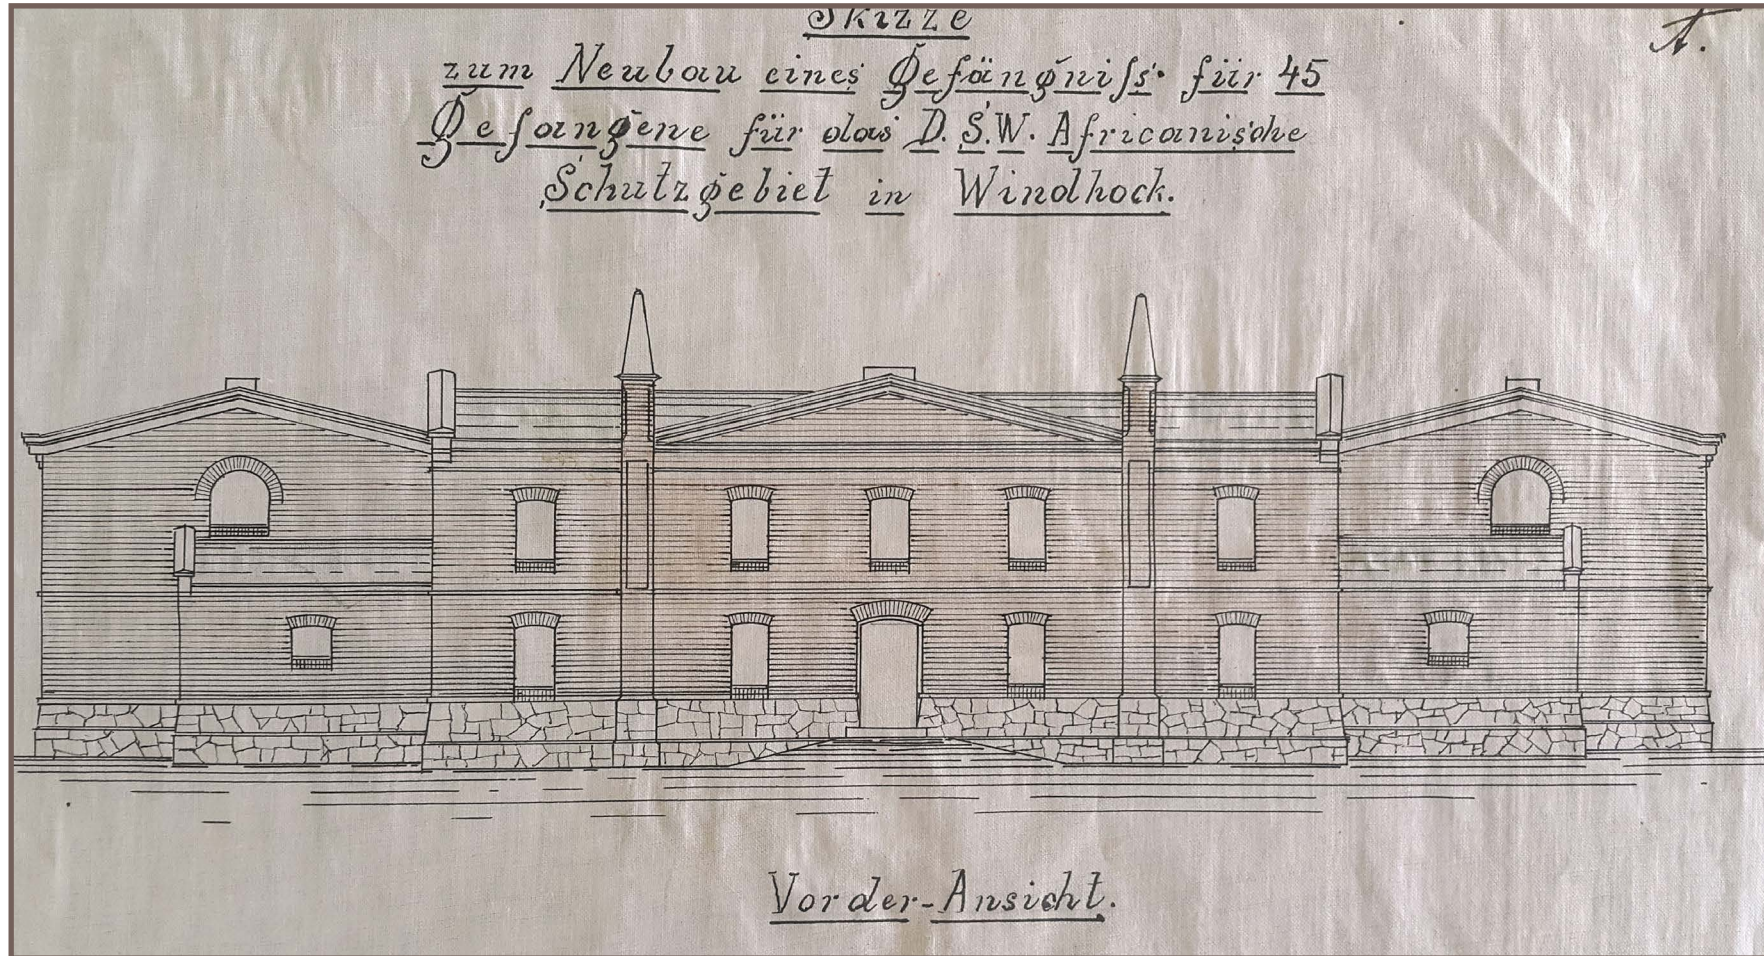 Skizze
A.
zum Neubau eines Gefängniss für 45
Gefangene für das D. S. W. Africanische
Schutzgebiet in Windhock.
Vorder-Ansicht.